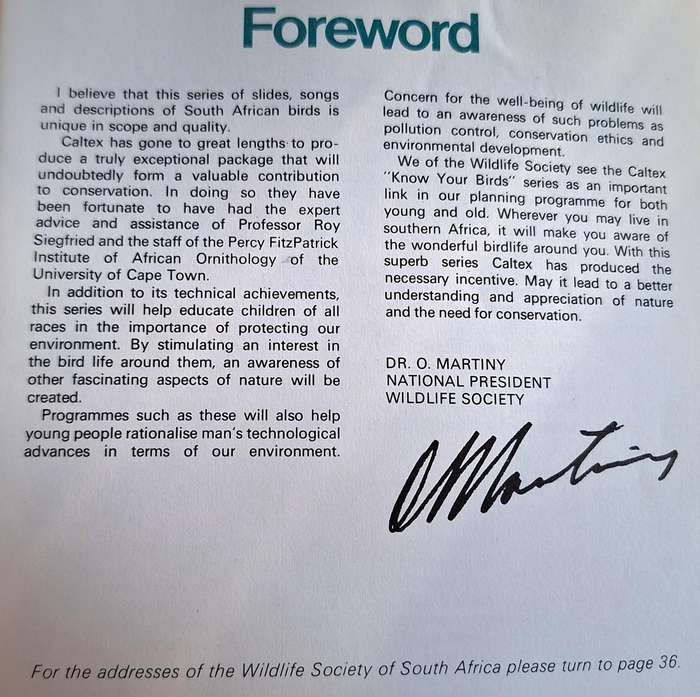 Foreword
I believe that this series of slides, songs
and descriptions of South African birds is
unique in scope and quality.
Caltex has gone to great lengths to pro-
duce a truly exceptional package that will
undoubtedly form a valuable contribution
to conservation. In doing so they have
been fortunate to have had the expert
advice and assistance of Professor Roy
Siegfried and the staff of the Percy FitzPatrick
Institute of African Ornithology of the
University of Cape Town.
In addition to its technical achievements,
this series will help educate children of all
races in the importance of protecting our
environment. By stimulating an interest in
the bird life around them, an awareness of
other fascinating aspects of nature will be
created.
Programmes such as these will also help
young people rationalise man's technological
advances in terms of our environment.
Concern for the well-being of wildlife will
lead to an awareness of such problems as
pollution control, conservation ethics and
environmental development.
We of the Wildlife Society see the Caltex
"Know Your Birds" series as an important
link in our planning programme for both
young and old. Wherever you may live in
southern Africa, it will make you aware of
the wonderful birdlife around you. With this
superb series Caltex has produced the
necessary incentive. May it lead to a better
understanding and appreciation of nature
and the need for conservation.
DR. O. MARTINY
NATIONAL PRESIDENT
WILDLIFE SOCIETY
O Martiny
For the addresses of the Wildlife Society of South Africa please turn to page 36.